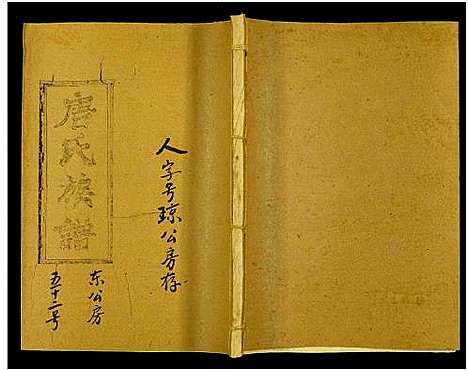 唐氏族譜
人字号琼公房存
东公房
五十二号